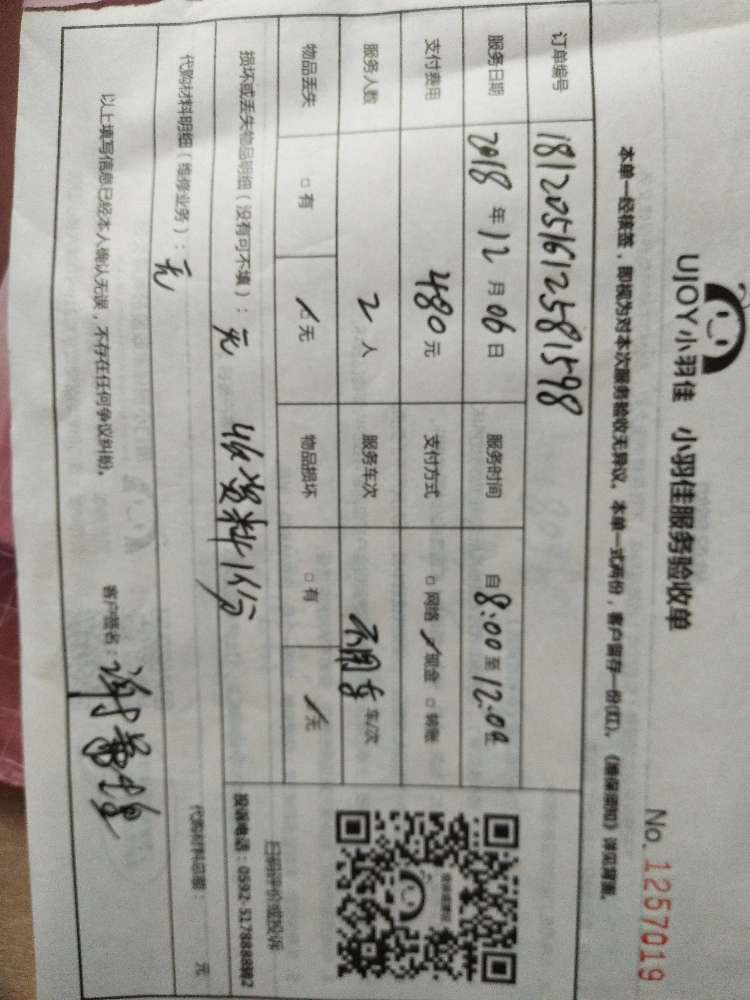 UJOY小羽佳 小羽佳服务验收单
No. 1257019
本单一经核签，即视为对本次服务验收无异议。本单一式两份，客户留存一份(红)。《维保须知》详见背面。
订单编号 181205161258 1598
服务日期 2018 年 12 月 06 日 服务时间 自 8:00 至 12:00
支付费用 480 元 支付方式 □ 网络 ✓ 现金 □ 转账
服务人数 2 人 服务车次 不用车 车/次
物品丢失 □ 有 ✓ 无 物品损坏 □ 有 ✓ 无
损坏或丢失物品明细（没有可不填）： 无 收资料1份
代购材料明细（维修业务）： 无 代购材料总额： 元
以上填写信息已经本人确认无误，不存在任何争议纠纷。 客户签名：
扫码评价或投诉
投诉电话：0592-5178888转2